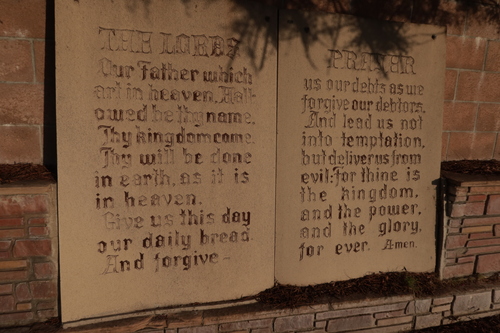 THE LORDS
Our Father which
art in heaven, Hall-
owed be thy name.
Thy kingdom come.
Thy will be done
in earth, as it is
in heaven.
Give us this day
our daily bread.
And forgive -
PRAYER
us our debts as we
forgive our debtors.
And lead us not
into temptation,
but deliver us from
evil: For thine is
the kingdom.
and the power,
and the glory,
for ever. Amen.